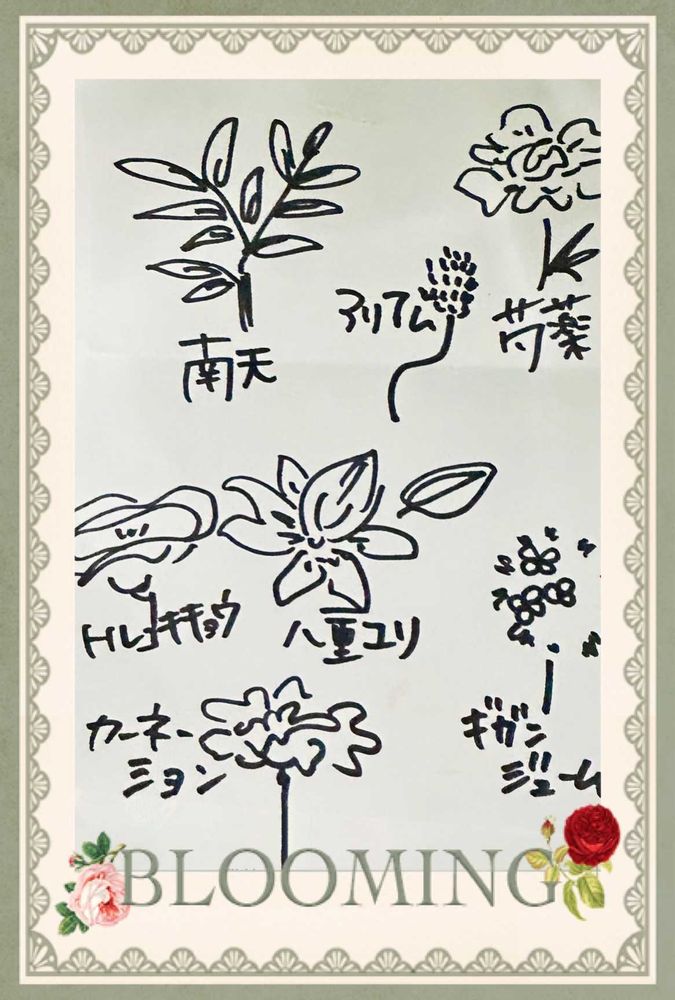 南天
アリアム
芍薬
トルコキキョウ
八重ユリ
カーネー
ション
ギガン
ジューム
BLOOMING